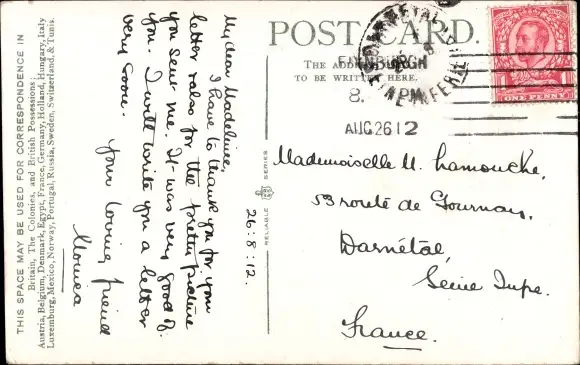 THIS SPACE MAY BE USED FOR CORRESPONDENCE IN
Britain, The Colonies, and British Possessions;
Austria, Belgium, Denmark, Egypt, France, Germany, Holland, Hungary, Italy
Luxemburg, Mexico, Norway, Portugal, Russia, Sweden, Switzerland, & Tunis.
My dear Madeleine,
I have to thank you for your
letter & also for the pretty picture
you sent me. It was very good of
you. I will write you a letter
very soon.
Your loving friend
26:8:12.
RELIABLE SERIES
POST CARD.
THE ADDRESS
TO BE WRITTEN HERE.
EDINBURGH
8. PM
AUG 26 12
DARNETAL
ONE PENNY
Mademoiselle M. Lamouche,
53 route de Gournay,
Darnétal,
Seine Infre.
France.